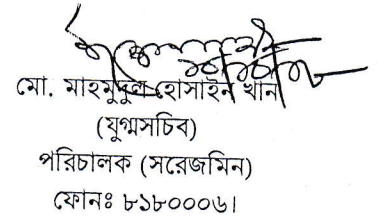 মো. মাহমুদুল হোসাইন খান
(যুগ্মসচিব)
পরিচালক (সরেজমিন)
ফোনঃ ৮১৮০০০৬।